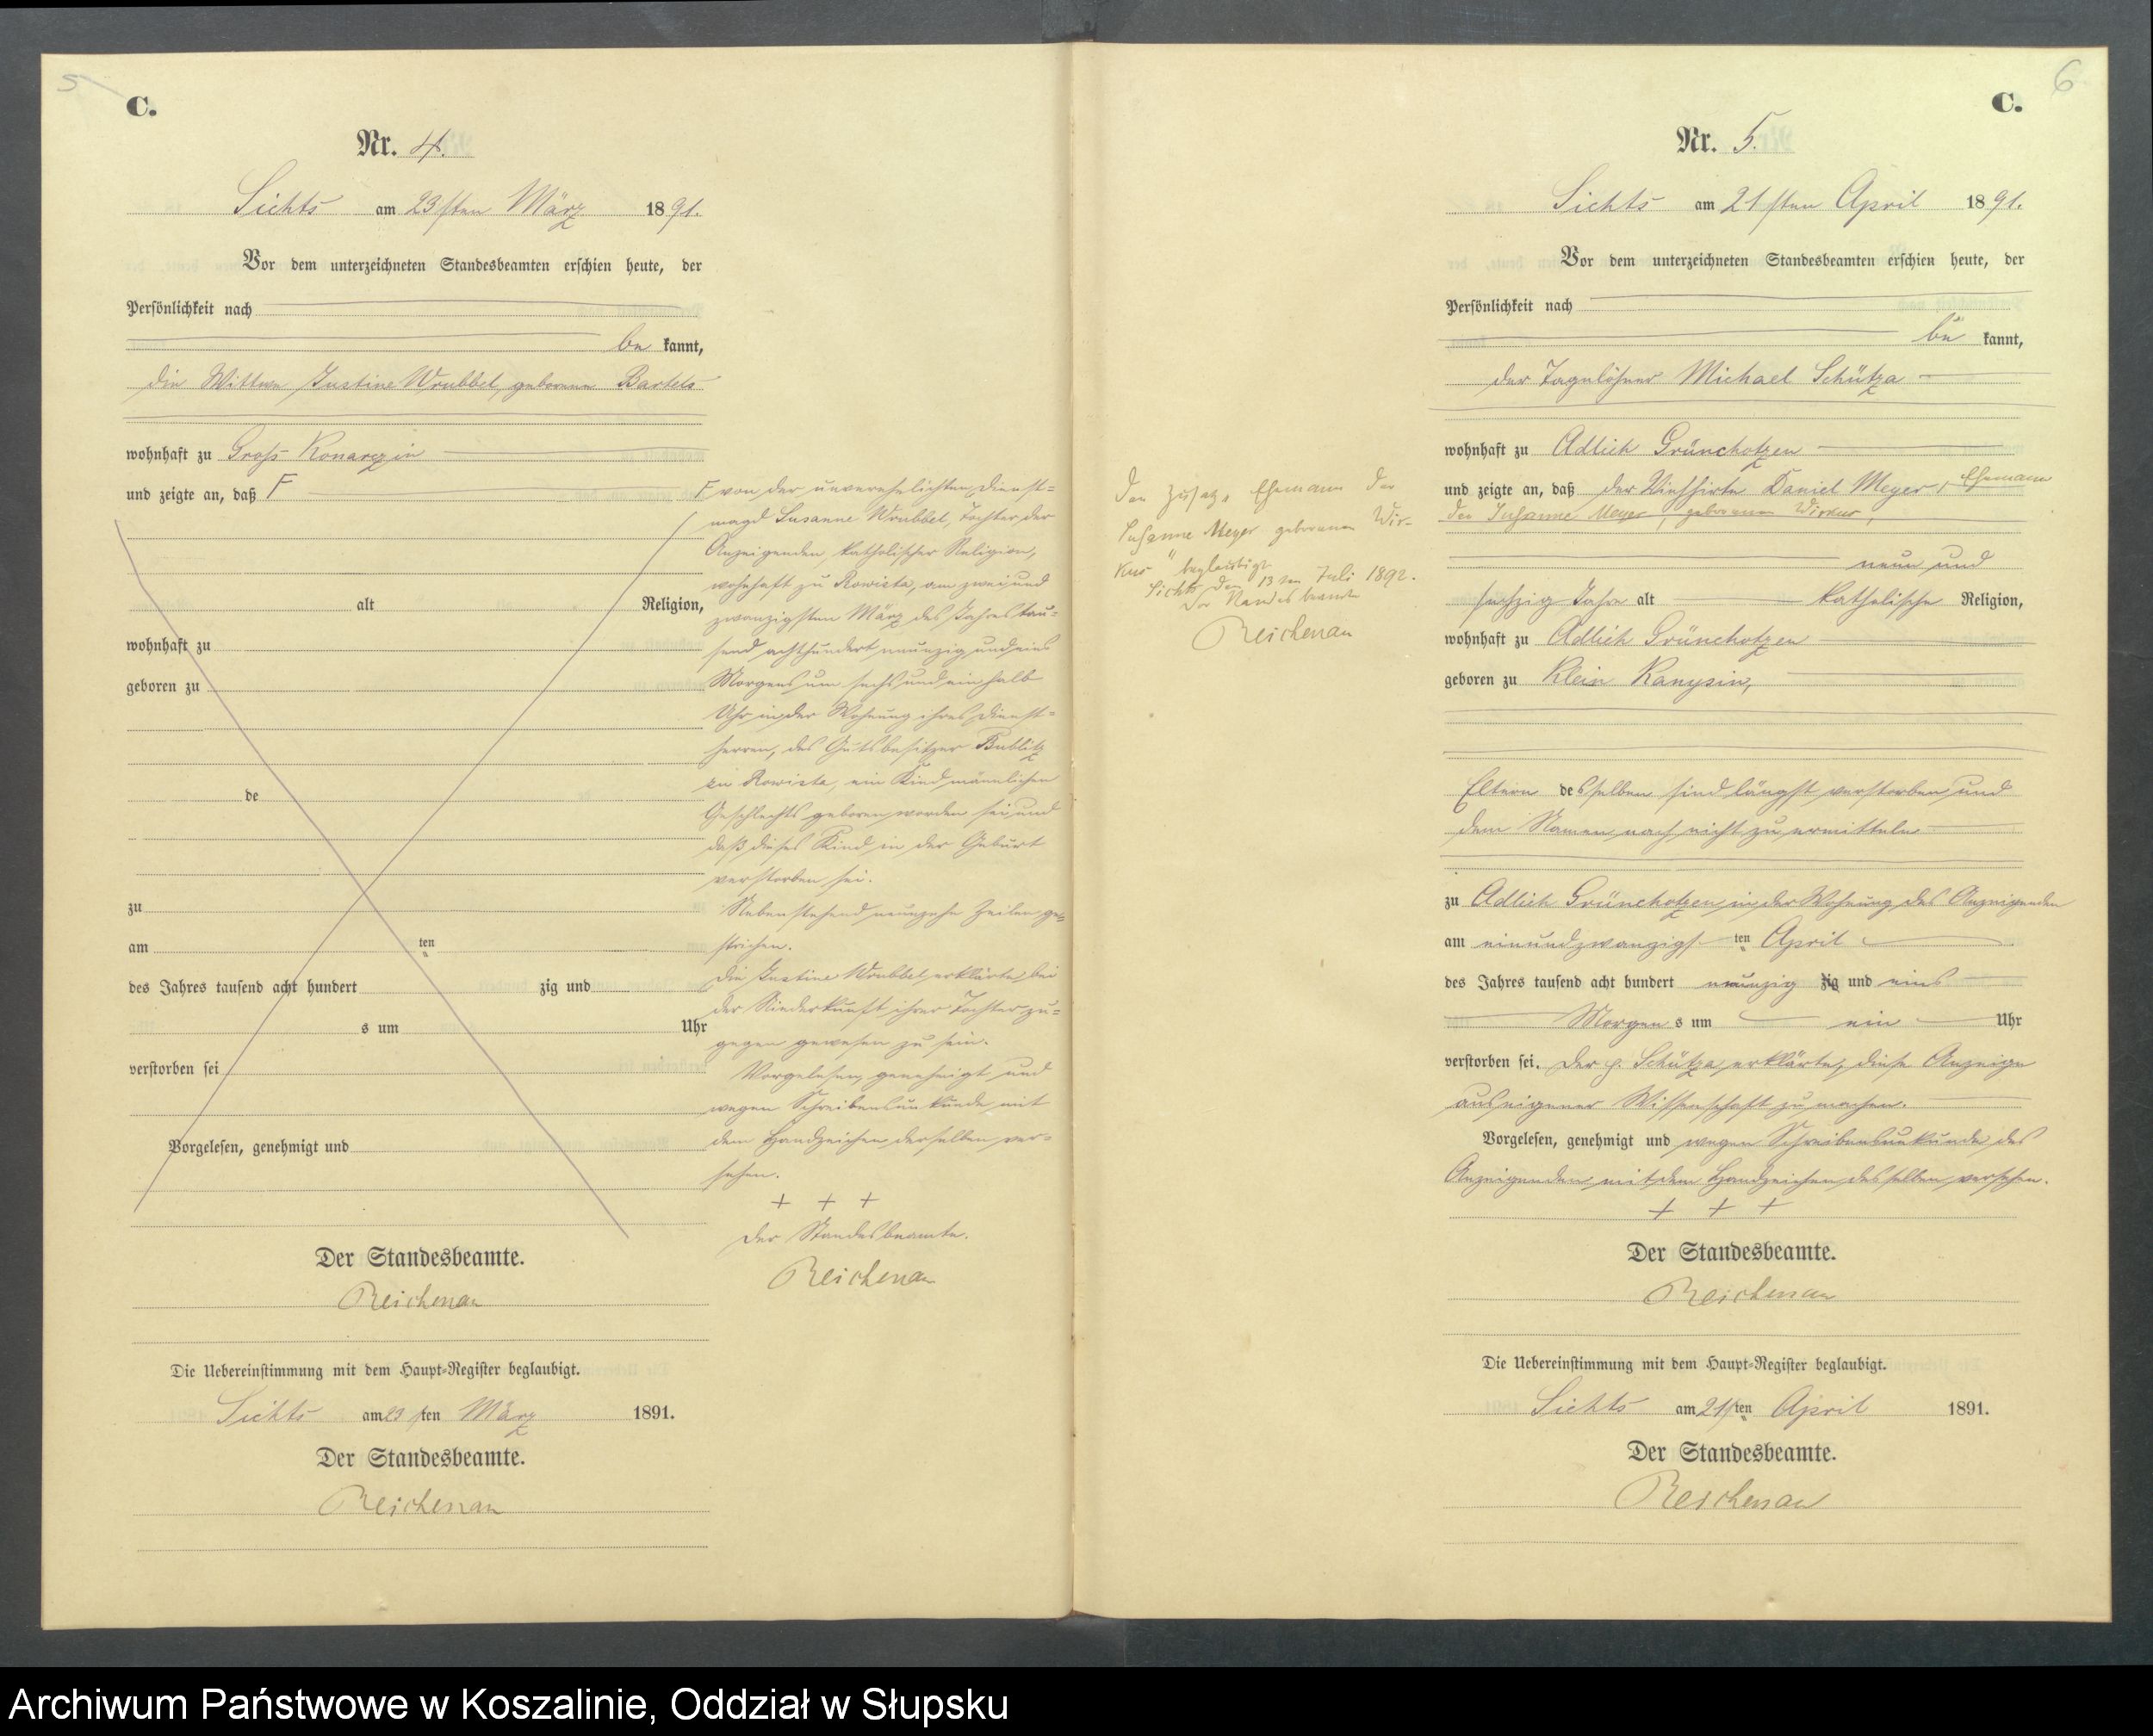 5
C.
Nr. 4.
Sichts am 23sten März 1891.
Vor dem unterzeichneten Standesbeamten erschien heute, der
Persönlichkeit nach
be kannt,
die Wittwe Justine Wrubbel, geborene Bartels
wohnhaft zu Groß Konarczin
und zeigte an, daß F
alt Religion,
wohnhaft zu
geboren zu
de
zu
am ten
des Jahres tausend acht hundert zig und
s um Uhr
verstorben sei
Vorgelesen, genehmigt und
F von der unverehelichten Dienst=
magd Susanne Wrubbel, Tochter der
Anzeigenden, katholischer Religion,
wohnhaft zu Rowista, am zwei und
zwanzigsten März des Jahres tau=
send achthundert neunzig und eins
Morgens um sechs und ein halb
Uhr in der Wohnung ihres Dienst=
herren, des Gutsbesitzer Bublitz
zu Rowista, ein Kind männlichen
Geschlechts geboren worden sei und
daß dieses Kind in der Geburt
verstorben sei.
Nebenstehend neunzehn Zeilen ge=
strichen.
Die Justine Wrubbel erklärte, bei
der Niederkunft ihrer Tochter zu=
gegen gewesen zu sein.
Vorgelesen, genehmigt und
wegen Schreibensunkunde mit
dem Handzeichen derselben ver=
sehen.
+ + +
Der Standesbeamte.
Reichenau
Der Standesbeamte.
Reichenau
Die Uebereinstimmung mit dem Haupt=Register beglaubigt.
Sichts am 23sten März 1891.
Der Standesbeamte.
Reichenau
6
C.
Nr. 5.
Sichts am 21sten April 1891.
Vor dem unterzeichneten Standesbeamten erschien heute, der
Persönlichkeit nach
be kannt,
der Tagelöhner Michael Schütza
wohnhaft zu Adlich Grünchotzen
und zeigte an, daß der Viehhirte Daniel Meyer, Ehemann
der Susanne Meyer, geborenen Wirkus,
neun und
sechzig Jahre alt katholische Religion,
wohnhaft zu Adlich Grünchotzen
geboren zu Klein
Eltern desselben sind längst verstorben und
dem Namen nach nicht zu ermitteln
zu Adlich Grünchotzen, in der Wohnung des Anzeigenden
am einundzwanzigsten April
des Jahres tausend acht hundert neunzig zig und eins
Morgens um ein Uhr
verstorben sei. Der p. Schütza erklärte, diese Anzeige
aus eigener Wissenschaft zu machen.
Vorgelesen, genehmigt und wegen Schreibensunkunde des
Anzeigenden mit dem Handzeichen desselben versehen.
+ + +
Der Standesbeamte.
Reichenau
Die Uebereinstimmung mit dem Haupt=Register beglaubigt.
Sichts am 21sten April 1891.
Der Standesbeamte.
Reichenau
Den Zusatz „Ehemann der
Susanne Meyer geborenen Wir-
kus" beglaubigt
Sichts den 13ten Juli 1892.
Der Standesbeamte
Reichenau
Archiwum Państwowe w Koszalinie, Oddział w Słupsku